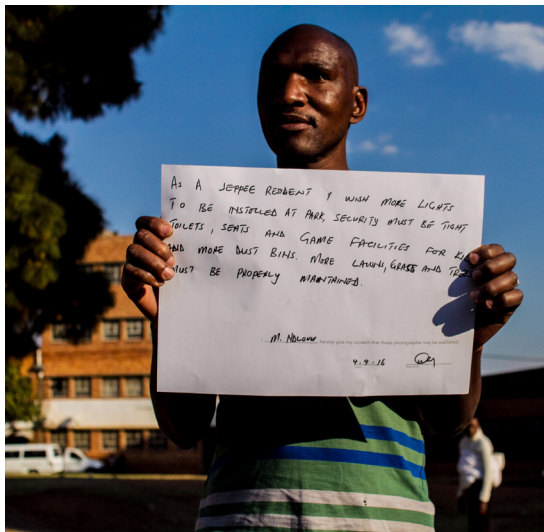 AS A JEPPEE REDDENT I WISH MORE LIGHTS
TO BE INSTALLED AT PARK, SECURITY MUST BE TIGHT
TOILETS, SEATS AND GAME FACILITIES FOR
AND MORE DUST BINS. MORE LAWNS, GRASS AND
MUST BE PROPERLY MAINTAINED.
M. NDLOVU hereby give my consent that these photographs may be published
4-9-16